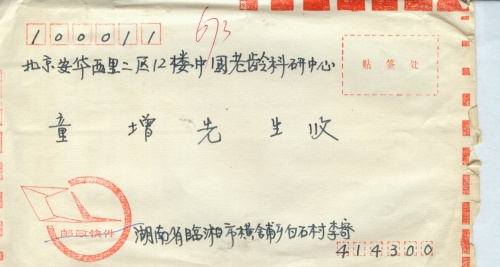 673
100011
北京安华西里二区12楼中国老龄科研中心
贴签处
童增先生收
邮政快件
湖南省临湘市横铺乡白石村李
414300